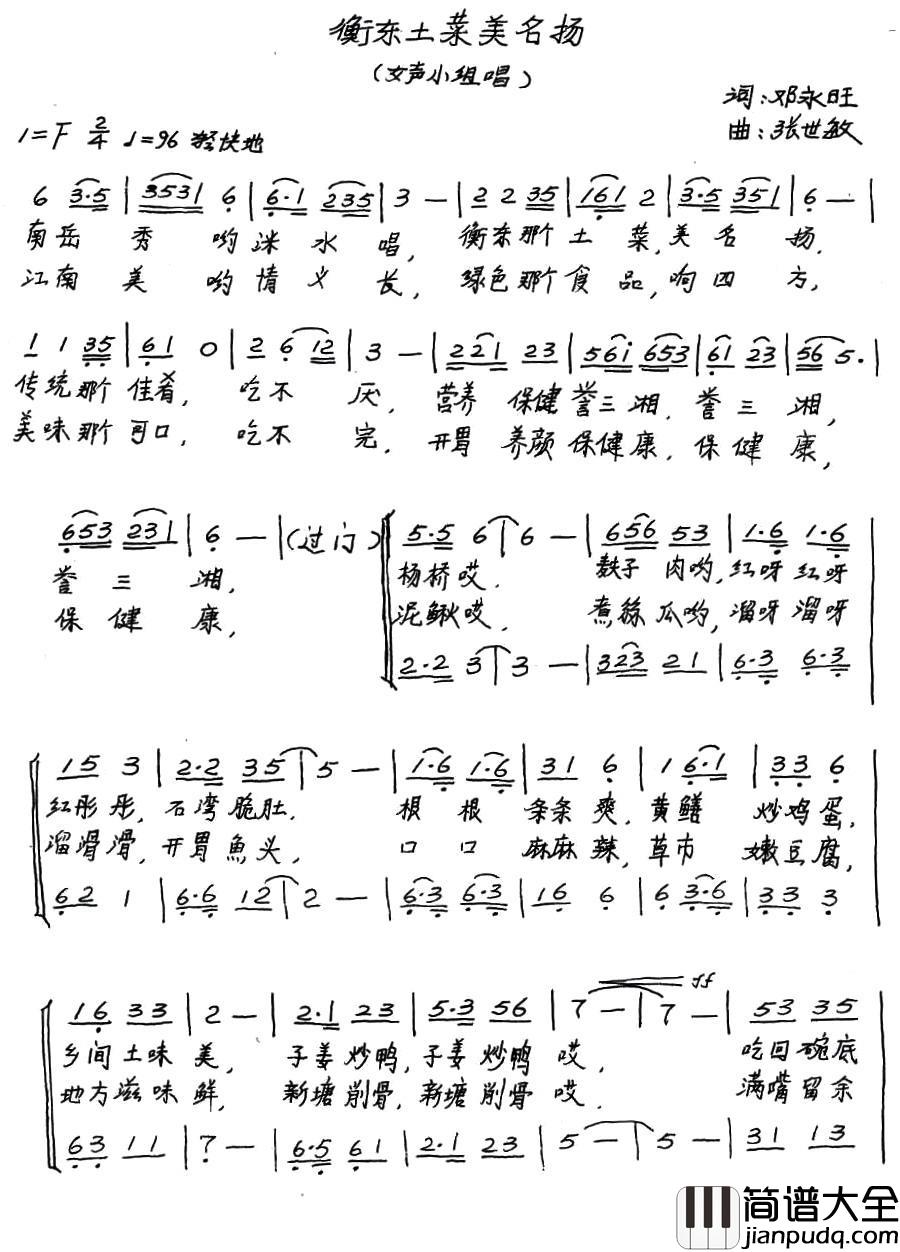 衡东土菜美名扬
(女声小组唱)
词:邓永旺
1=F 2/4 ♩=96 轻快地
曲:张世敏
6 3·5 | 3531 6 | 6·1 235 | 3 — | 2 2 35 | 161 2 | 3·5 351 | 6 — |
南岳秀哟洣水唱,衡东那个土菜,美名扬,
江南美哟情义长,绿色那个食品,响四方,
1 1 35 | 61 0 | 2 6 12 | 3 — | 221 23 | 561 653 | 61 23 | 56 5· |
传统那个佳肴,吃不厌,营养保健誉三湘,誉三湘,
美味那个可口,吃不完,开胃养颜保健康,保健康,
653 231 | 6 — | (过门) 5·5 6 | 6 — | 656 53 | 1·6 1·6 |
誉三湘,杨桥哎,麸子肉哟,红呀红呀
保健康,泥鳅哎,煮丝瓜哟,溜呀溜呀
2·2 3 | 3 — | 323 21 | 6·3 6·3 |
15 3 | 2·2 35 | 5 — | 1·6 1·6 | 31 6 | 1 6·1 | 33 6
红彤彤,石湾脆肚,根根条条爽,黄鳝炒鸡蛋,
溜滑滑,开胃魚头,口口麻麻辣,草市嫩豆腐,
62 1 | 6·6 12 | 2 — | 6·3 6·3 | 16 6 | 6 3·6 | 33 3
16 33 | 2 — | 2·1 23 | 5·3 56 | 7 — | 7 — | 53 35
ff
乡间土味美,子姜炒鸭,子姜炒鸭哎,吃回碗底
地方滋味鲜,新塘削骨,新塘削骨哎,满嘴留余
63 11 | 7 — | 6·5 61 | 2·1 23 | 5 — | 5 — | 31 13
简谱大全
jianpudq.com